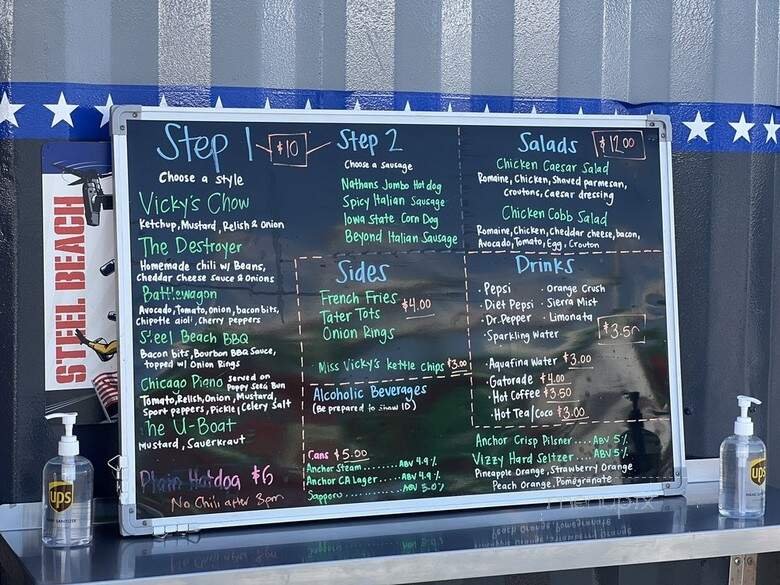 STEEL BEACH
Step 1
$10
Choose a style
Vicky's Chow
Ketchup, Mustard, Relish & onion
The Destroyer
Homemade chili w/ Beans,
Cheddar Cheese Sauce & Onions
Battlewagon
Avocado, Tomato, onion, bacon bits,
Chipotle aioli, Cherry peppers
Steel Beach BBQ
Bacon bits, Bourbon BBQ Sauce,
topped w/ Onion Rings
Chicago Piano served on
Poppy Seed Bun
Tomato, Relish, Onion, Mustard,
Sport peppers, Pickle, Celery Salt
The U-Boat
Mustard, Sauerkraut
Plain Hotdog $6
No Chili after 3pm
Step 2
Choose a sausage
Nathans Jumbo Hot dog
Spicy Italian Sausage
Iowa State Corn Dog
Beyond Italian Sausage
Sides
French Fries
Tater Tots
Onion Rings
$4.00
Miss Vicky's kettle chips $3.00
Alcoholic Beverages
(Be prepared to show ID)
Cans $5.00
Anchor Steam........ABV 4.9%
Anchor CA Lager.....ABV 4.9%
Sapporo.............ABV 5.0%
Salads
$12.00
Chicken Caesar Salad
Romaine, Chicken, Shaved parmesan,
Croutons, Caesar dressing
Chicken Cobb Salad
Romaine, Chicken, Cheddar cheese, bacon,
Avocado, Tomato, Egg, Crouton
Drinks
· Pepsi · Orange Crush
· Diet Pepsi · Sierra Mist
· Dr. Pepper · Limonata
· Sparkling Water
$3.50
· Aquafina Water $3.00
· Gatorade $4.00
· Hot Coffee $3.50
· Hot Tea/Coco $3.00
Anchor Crisp Pilsner....ABV 5%
Vizzy Hard Seltzer...ABV 5%
Pineapple Orange, Strawberry Orange
Peach Orange, Pomegranate
ups
ups